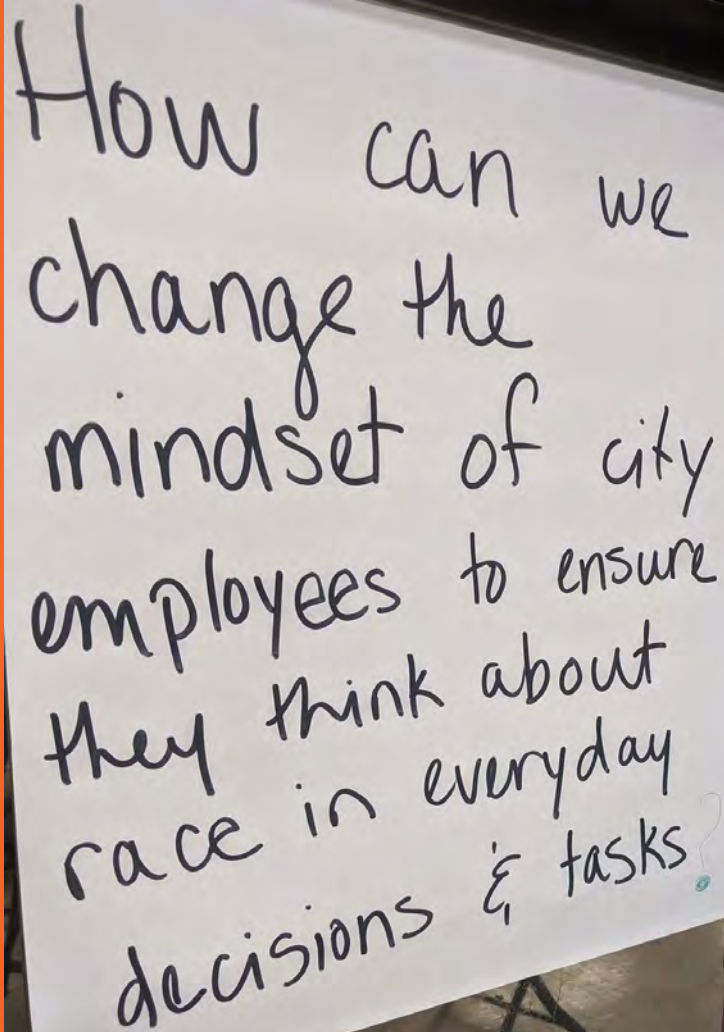 How can we
change the
mindset of city
employees to ensure
they think about
race in everyday
decisions & tasks?